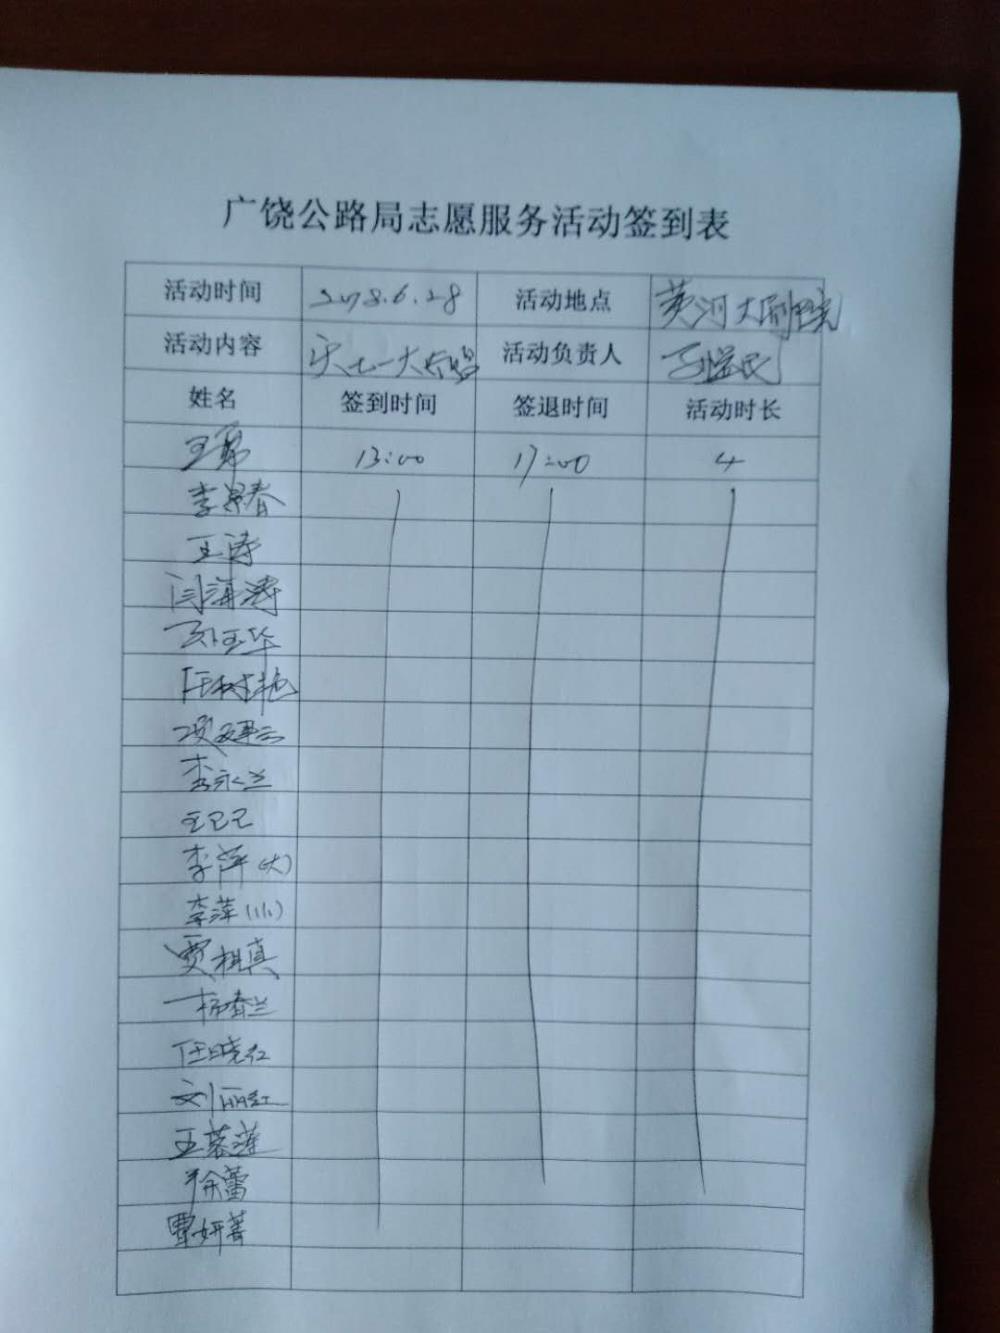 广饶公路局志愿服务活动签到表
活动时间 2018.6.28 活动地点 黄河大剧院
活动内容 庆七一大合唱 活动负责人
姓名 签到时间 签退时间 活动时长
王勇 13:00 17:00 4
李景春
王涛
闫海涛
孙玉华
任树艳
李永兰
王己己
李萍(大)
李萍(小)
贾相真
杨春兰
任晓红
刘丽红
王蓉莲
徐蕾
覃妍菁